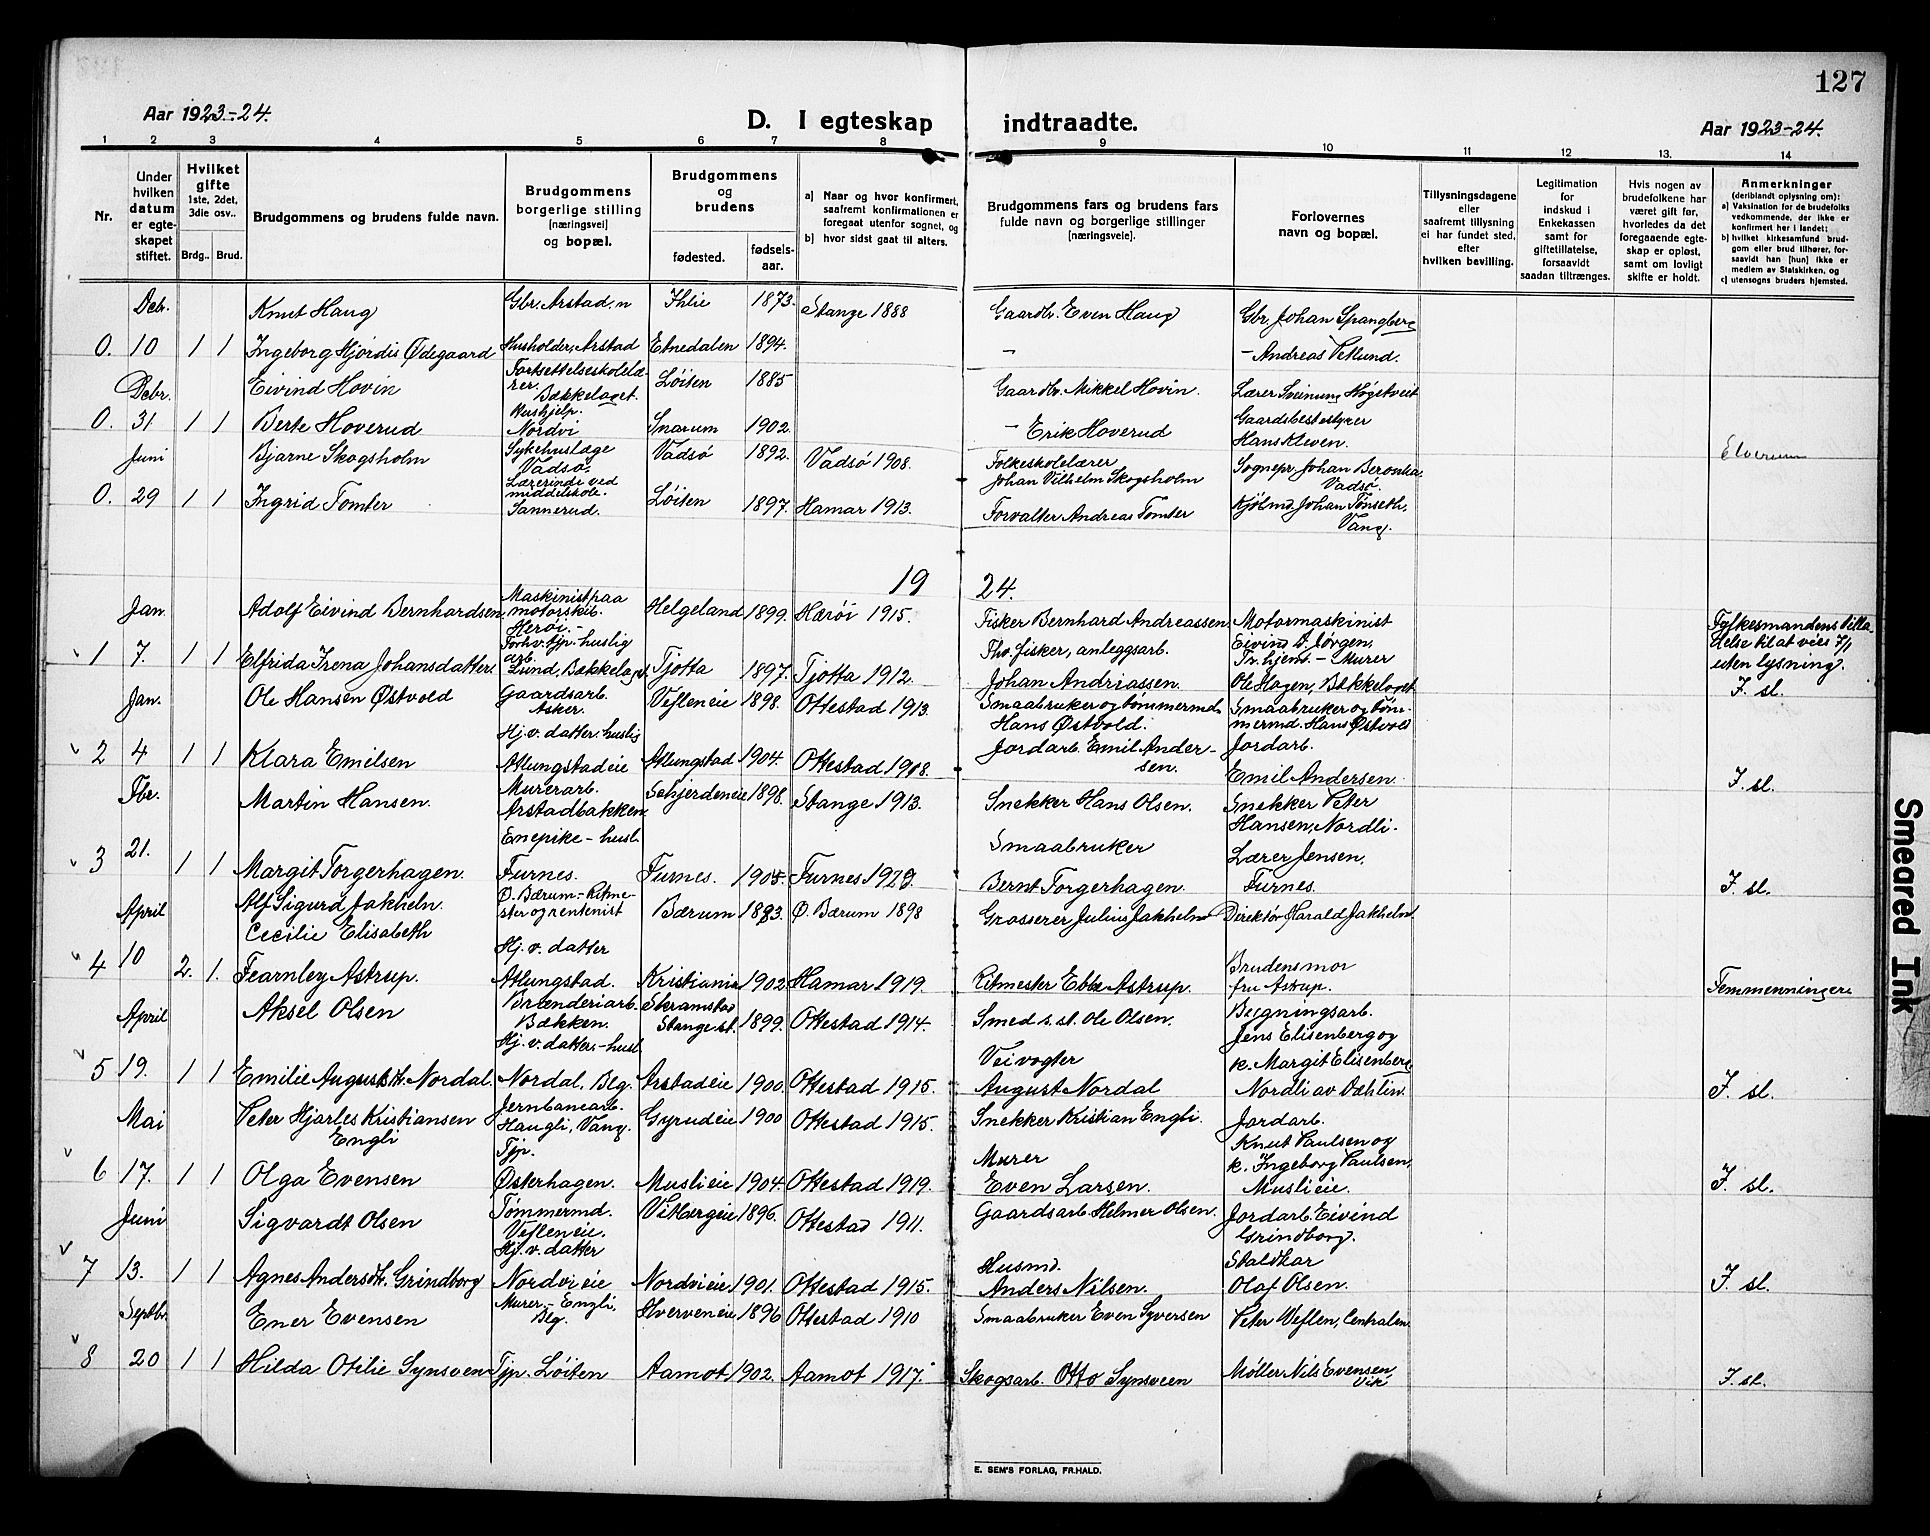 127
Aar 1923-24.
D. I egteskap indtraadte.
Aar 1923-24.
1 2 3 4 5 6 7 8 9 10 11 12 13. 14
Nr.
Under hvilken datum er egteskapet stiftet.
Hvilket gifte 1ste, 2det, 3die osv..
Brdg.. Brud.
Brudgommens og brudens fulde navn.
Brudgommens borgerlige stilling (næringsvei) og bopæl.
Brudgommens og brudens
fødested. fødselsaar.
a) Naar og hvor konfirmert, saafremt konfirmationen er foregaat utenfor sognet, og
b) hvor sidst gaat til alters.
Brudgommens fars og brudens fars fulde navn og borgerlige stillinger (næringsveie).
Forlovernes navn og bopæl.
Tillysningsdagene eller saafremt tillysning ei har fundet sted, efter hvilken bevilling.
Legitimation for indskud i Enkekassen samt for giftetillatelse, forsaavidt saadan tiltrænges.
Hvis nogen av brudefolkene har været gift før, hvorledes da det foregaaende egteskap er opløst, samt om lovligt skifte er holdt.
Anmerkninger (deriblandt oplysning om):
a) Vaksination for de brudefolks vedkommende, der ikke er konfirmert her i landet;
b) hvilket kirkesamfund brudgom eller brud tilhører, forsaavidt han [hun] ikke er medlem av Statskirken, og
c) utensogns bruders hjemsted.
Debr. Knut Haug Gbr. Arstad, n Ihlie 1873. Stange 1888 Gaardbr. Even Haug Gbr. Johan Spangberg
0. 10 1 1 Ingeborg Hjördis Ødegaard Husholder, Arstad Etnedalen 1894. – – Andreas Vetlund.
Debr. Eivind Hovin Fortsettelsesskolelærer. Bækkelaget. Løiten 1885 Gaardbr. Mikkel Hovin. Lærer Sveinung Høgetveit
0. 31 1 1 Berte Hoverud Hushjelp. Nordvi Snarum 1902. – Erik Hoverud Gaardsbestyrer Hans Kleven.
Juni Bjarne Skogsholm Sykehuslæge Vadsø. Vadsø 1892. Vadsø 1908. Folkeskolelærer Johan Vilhelm Skogsholm Sognepr. Johan Beronka Vadsø. Elverum
0. 29 1 1 Ingrid Tomter Lærerinde ved middelskole. Sannerud. Løiten 1897. Hamar 1913. Forvalter Andreas Tomter Kjölmd. Johan Tønseth, Vang.
19 24.
Jan. Adolf Eivind Bernhardsen Maskinist paa motorskib. Herøi.- Helgeland 1899. Hærøi 1915. Fisker Bernhard Andreassen Motormaskinist Eivind S. Jørgen, Fylkesmandens tilladelse til at vies 7/1 uten lysning.
1 7. 1 1 Elfrida Irena Johansdatter Forhv. tjp. huslig arb. Lund, Bækkelaget Tjotta 1897. Tjotta 1912. Thv. fisker, anleggsarb. Johan Andriassen. Tr.hjem. - Murer Ole Hagen, Bækkelaget
Jan. Ole Hansen Østvold Gaardsarb. Asker. Vefleneie 1898. Ottestad 1913. Smaabruker og tömmermd. Hans Østvold. Smaabruker og tømmermd. Hans Østvold I. sl.
2 4 1 1 Klara Emilsen Hj. v. datter. huslig Atlungstadeie Atlungstad 1904. Ottestad 1918. Jordarb. Emil Andersen. Jordarb. Emil Andersen. I. sl.
Fbr. Martin Hansen. Murerarb. Arstadbakken. Schjerdeneie 1898. Stange 1913. Snekker Hans Olsen. Snekker Peter Hansen, Nordli.
3 21. 1 1 Margit Torgerhagen. Enepike - husl. Furnes. Furnes. 1905. Furnes 1920. Smaabruker Bernt Torgerhagen. Lærer Jensen, Furnes. I. sl.
April Alf Sigurd Jakheln. Ø. Bærum - Ritmester og rentenist Bærum 1883. Ø. Bærum 1898 Grosserer Julius Jakheln Direktør Harald Jakheln
4 10 2. 1. Cecilie Elisabeth Fearnley Astrup. Hj. v. datter Atlungstad. Kristiania 1902. Hamar 1919. Ritmester Ebbe Astrup. Brudens mor fru Astrup. Femmenninger
April Aksel Olsen Brænderiarb. Bækken. Skramstad Stange st. 1899. Ottestad 1914. Smed s. st. Ole Olsen. Bygningsarb. Jens Elisenberg og
5 19. 1 1 Emilie Augustdt. Nordal. Hj. v. datter. - husl. Nordal, Blg. Arstadeie 1900. Ottestad 1915. Veivogter August Nordal k. Margit Elisenberg Nordli av Dahlin. I. sl.
Mai Peter Hjarles Kristiansen Engli Jernbanearb. Haugli, Vang. Gyrudeie 1900 Ottestad 1915. Snekker Kristian Engli. Jordarb. Knut Paulsen og
6 17. 1 1 Olga Evensen Tjp. Østerhagen. Muslieie 1904. Ottestad 1919. Murer Even Larsen. k. Ingeborg Paulsen, Muslieie. I. sl.
Juni Sigvardt Olsen Tømmermd. Vefleneie. Vitbergeie 1896. Ottestad 1911. Gaardsarb. Helmer Olsen. Jordarb. Eivind Grindborg.
7 13. 1 1 Agnes Andersdt. Grindborg Hj. v. datter Nordvieie Nordvieie 1901. Ottestad 1915. Husmd. Anders Nilsen. Staldkar Olaf Olsen. I. sl.
Septbr. Ener Evensen Murer.- Engli, Blg. Hverveneie 1896 Ottestad 1910 Smaabruker Even Syversen Peter Weflen, Centralen.
8 20 1 1 Hilda Otilie Synsveen Tjp. Løiten Aamot 1902. Aamot 1917. Skogsarb. Otto Synsveen Møller Nils Evensen Vik. I. sl.
E. SEM'S FORLAG, FR.HALD.
Smeared Ink